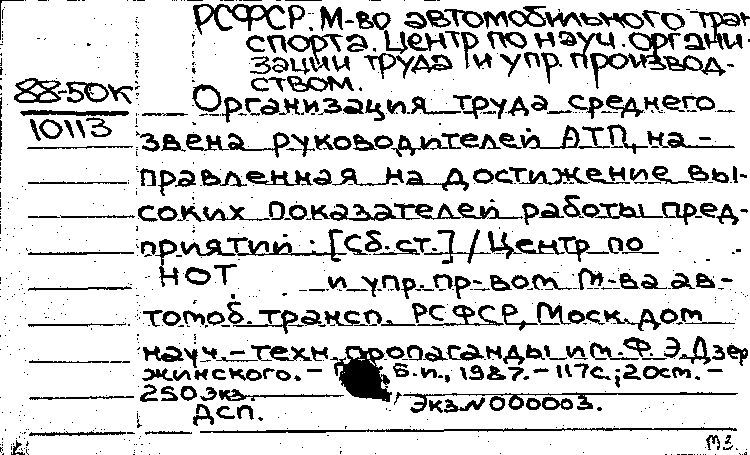 РСФСР. М-во автомобильного тран
спорта. Центр по науч. органи-
зации труда и упр. производ-
ством.
88-50К
10113
Организация труда среднего
звена руководителей АТП, на-
правленная на достижение вы-
соких показателей работы пред-
приятий : [Сб. ст.] / Центр по
НОТ и упр. пр-вом М-ва ав-
томоб. трансп. РСФСР, Моск. дом
науч.-техн. пропаганды им. Ф. Э. Дзер
жинского. - Б.и., 1987. - 117с.; 20см. -
250 экз.
ДСП. Экз. N000003.
МЗ.